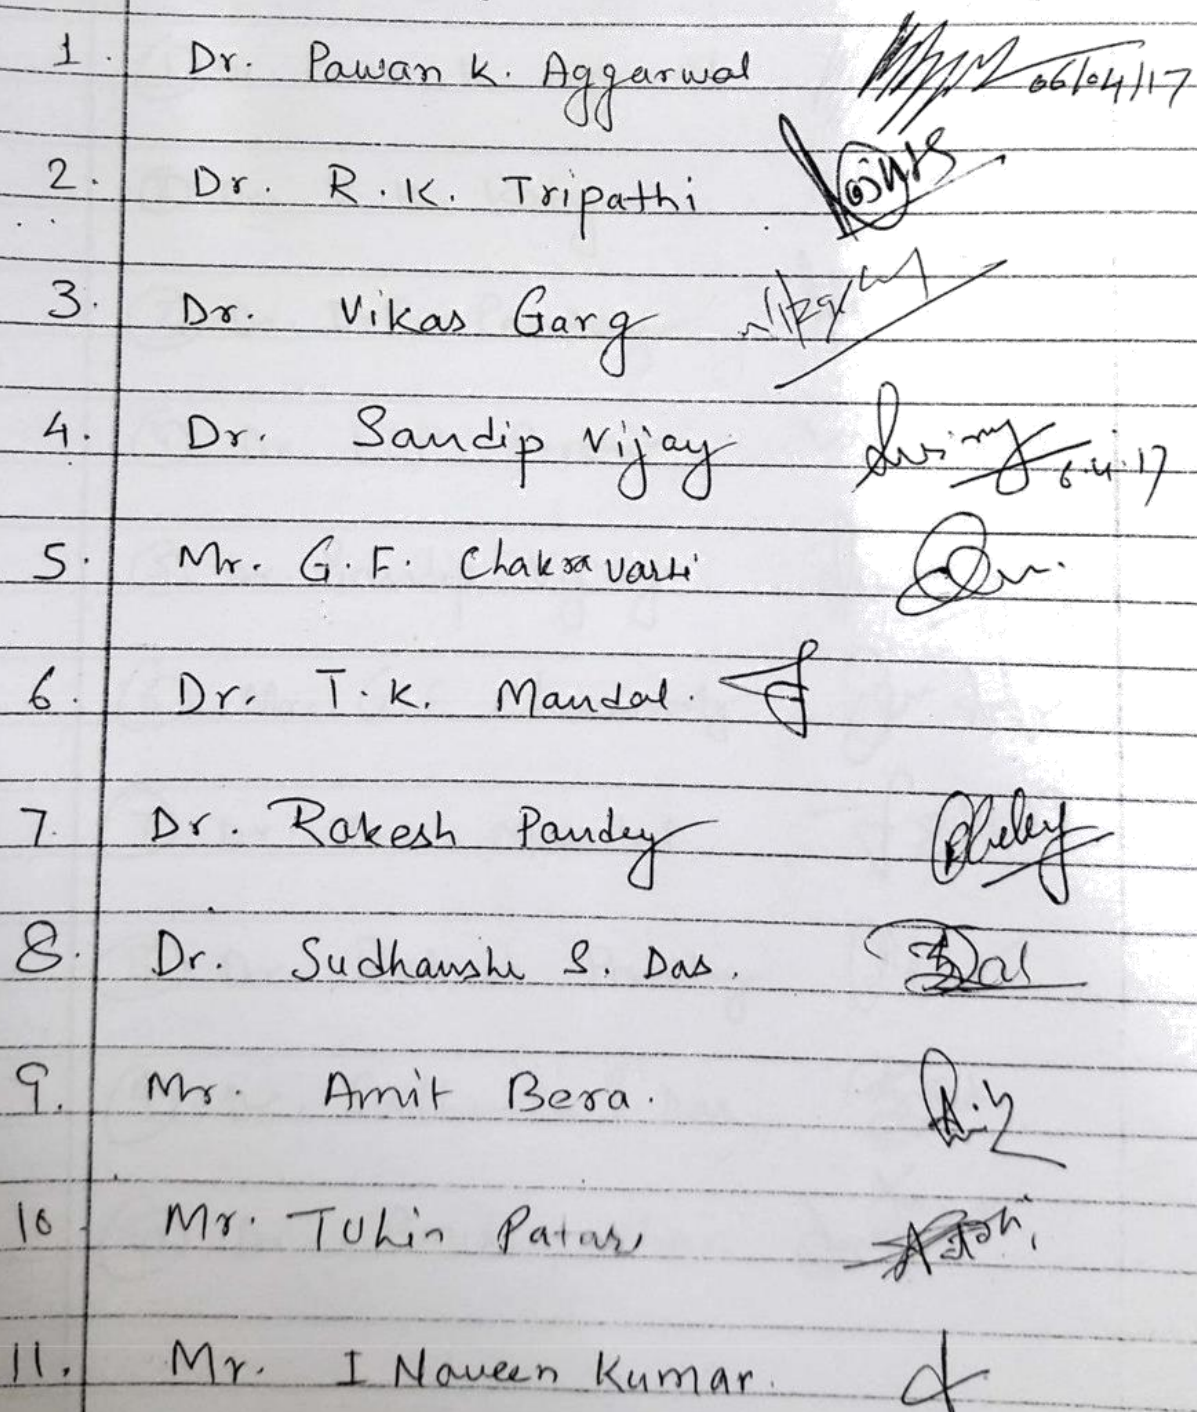 1. Dr. Pawan K. Aggarwal 06/04/17
2. Dr. R.K. Tripathi
3. Dr. Vikas Garg
4. Dr. Sandip Vijay 6.4.17
5. Mr. G.F. Chakravarti
6. Dr. T.K. Mandal.
7. Dr. Rakesh Pandey
8. Dr. Sudhanshu S. Das.
9. Mr. Amit Bera.
10 Mr. Tuhin Patar
11. Mr. I Naveen Kumar.